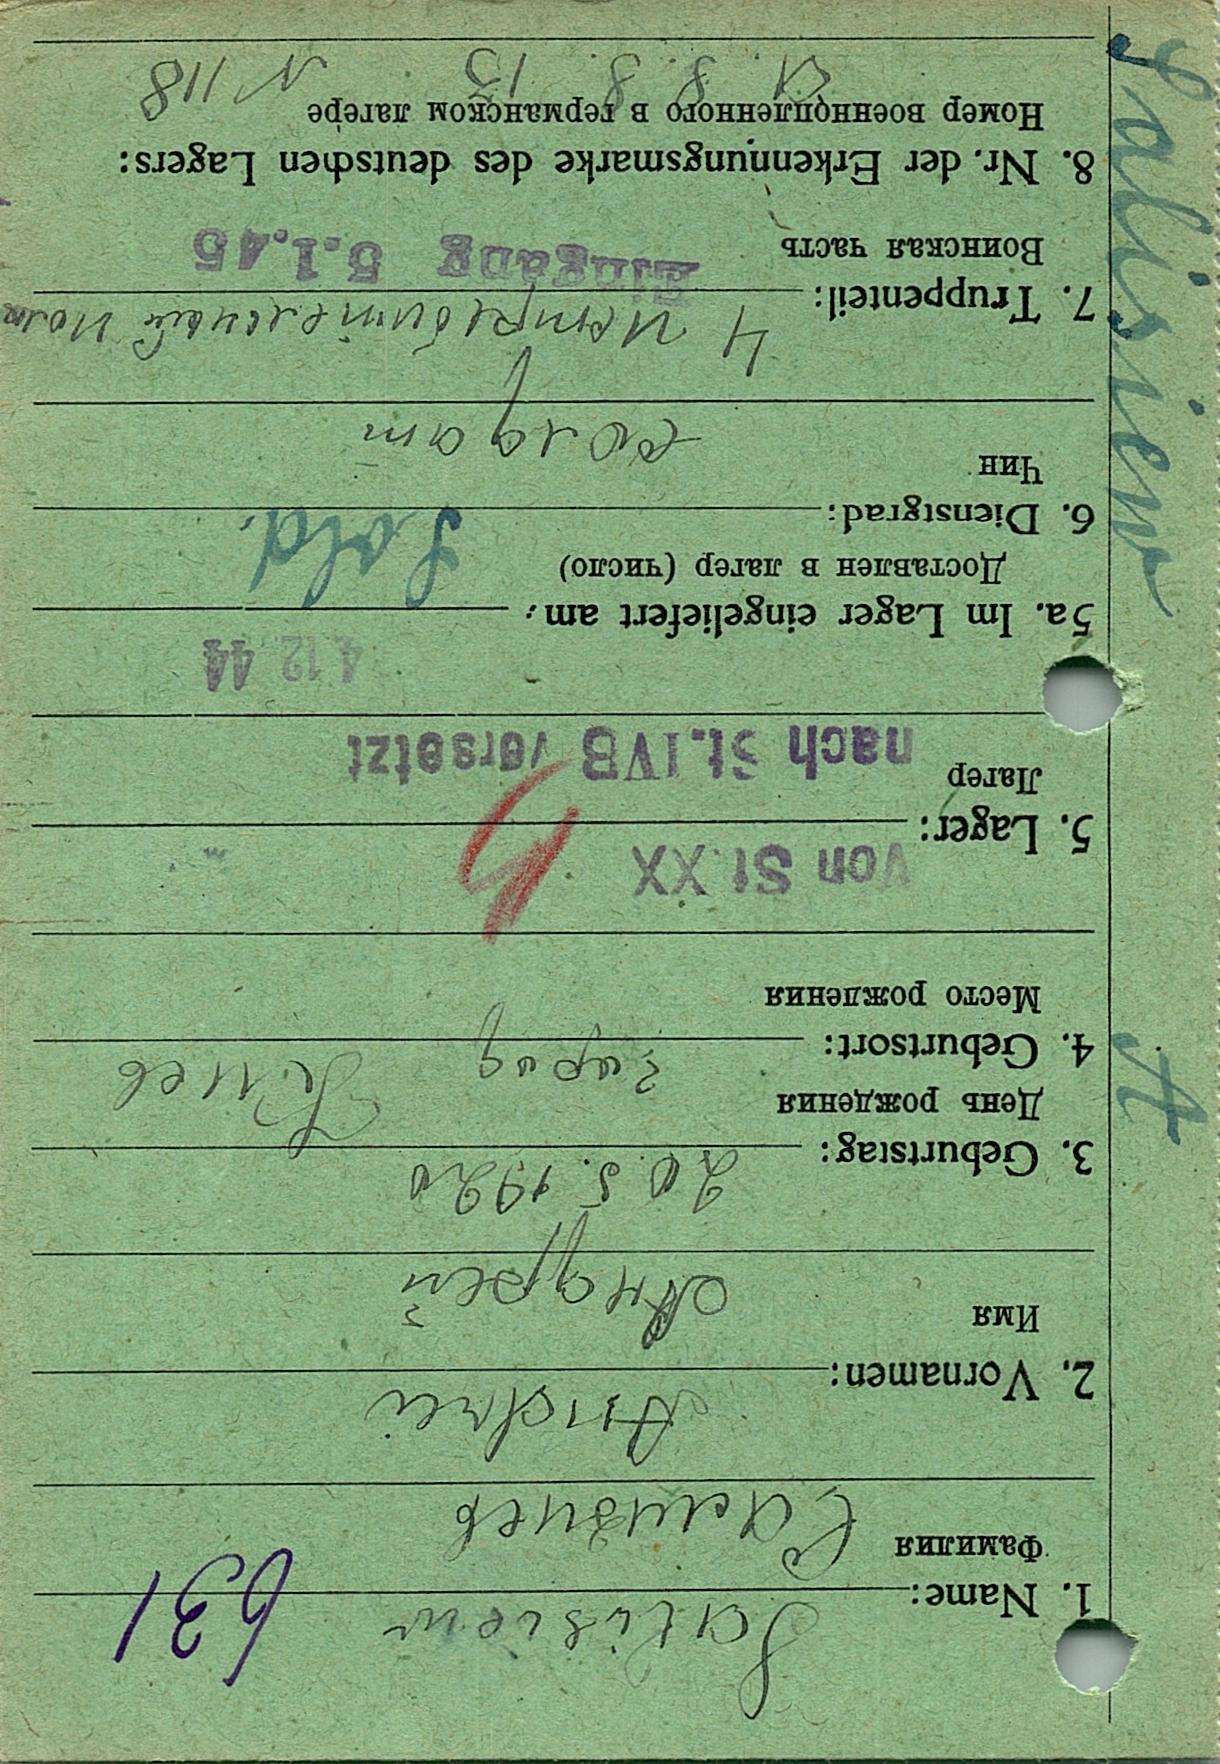 Salisiew A
631
Salisiew
1. Name:
Фамилия
Сализиев
Andrei
2. Vornamen:
Имя
Андрей
20.5.1920
3. Geburtstag:
День рождения
город Киев
4. Geburtsort:
Место рождения
von St. XX
5. Lager:
Лагер
nach St. IVB versetzt
4.12.44
5a. Im Lager eingeliefert am:
Доставлен в лагер (число)
Sold.
6. Dienstgrad:
Чин
солдат
4
7. Truppenteil:
Воинская часть
Eingang 5.1.45
8. Nr. der Erkennungsmarke des deutschen Lagers:
Номер военнопленного в германском лагере
N 118